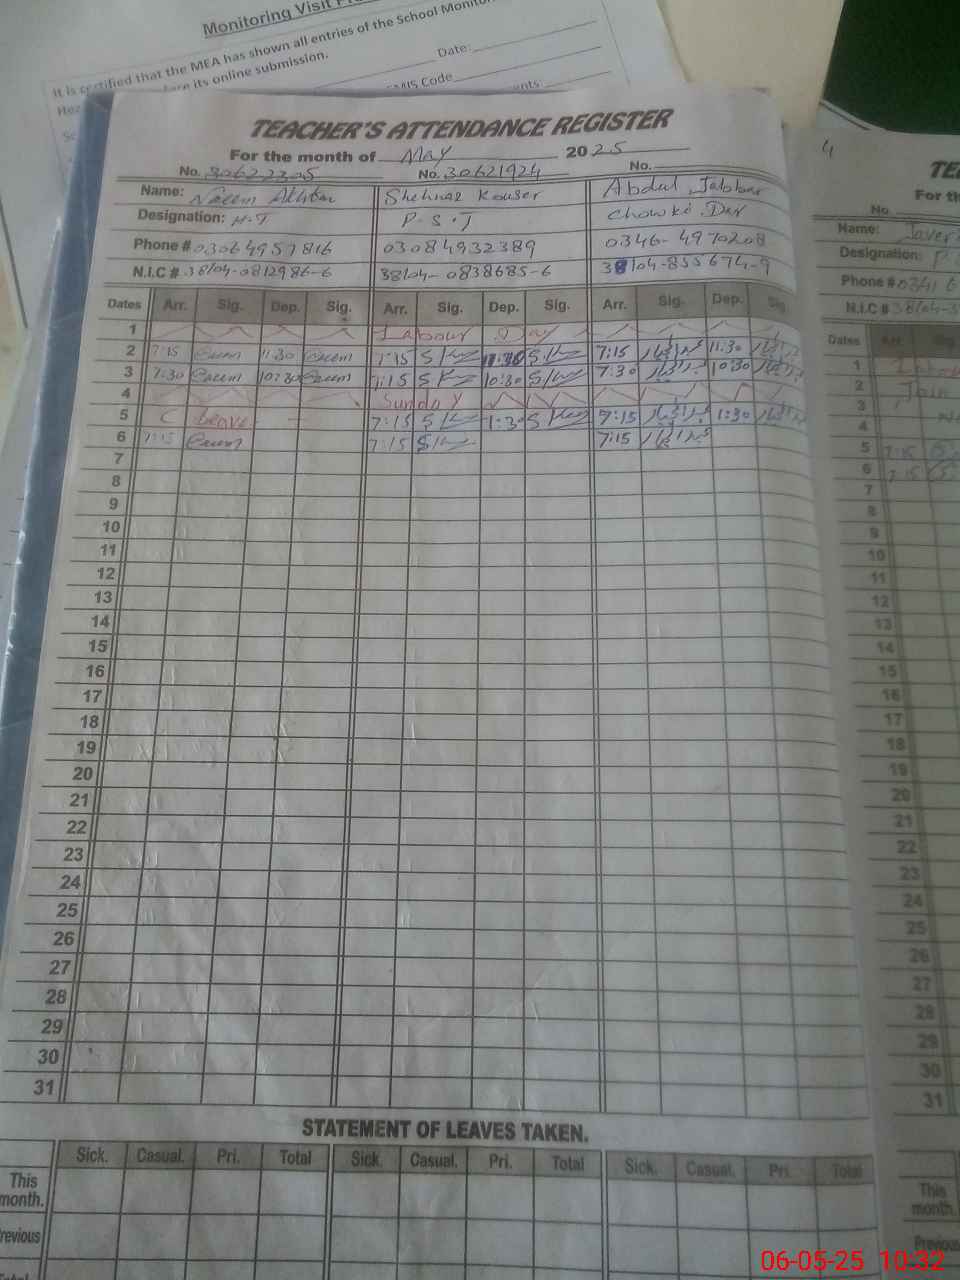 Monitoring Visit
It is certified that the MEA has shown all entries of the School
its online submission.
Date:
Code
TEACHER'S ATTENDANCE REGISTER
For the month of May 2025
No. 30622305 No. 30621924 No.
Name: Naeem Akhtar Shehnaz Kouser Abdul Jabbar
Designation: H.T P.S.T Chowki Dar
Phone # 03064957816 03084932389 0346-4970208
N.I.C # 38104-0812986-6 38104-0838685-6 38104-855674-9
Dates Arr. Sig. Dep. Sig. Arr. Sig. Dep. Sig. Arr. Sig. Dep. Sig.
1 Labour Day
2 7:15 11:30 7:15 11:30 7:15 11:30
3 7:30 10:30 7:15 10:30 7:30 10:30
4 Sunday
5 C leave 7:15 1:30 7:15 1:30
6 7:15 7:15 7:15
7
8
9
10
11
12
13
14
15
16
17
18
19
20
21
22
23
24
25
26
27
28
29
30
31
STATEMENT OF LEAVES TAKEN.
Sick. Casual. Pri. Total Sick. Casual. Pri. Total Sick. Casual. Pri. Total
This month.
Previous
4
No.
Name:
Designation: P
Phone #
N.I.C #
Dates Arr. Sig.
1
2 Join
3
4
5 7:15
6 7:15
7
8
9
10
11
12
13
14
15
16
17
18
19
20
21
22
23
24
25
26
27
28
29
30
31
This month.
Previous
06-05-25 10:32